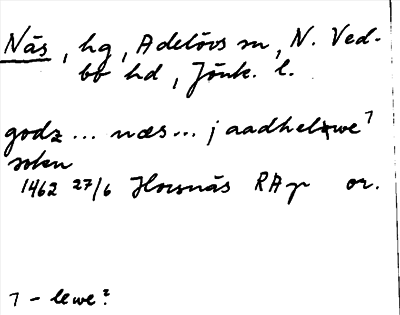 Näs, hg, Adelövs sn, N. Ved-
bo hd, Jönk. l.
godz ... næs ... j aadheløwe ⁊
sokn
1462 27/6 Hornäs RAp or.
⁊ - lewe?